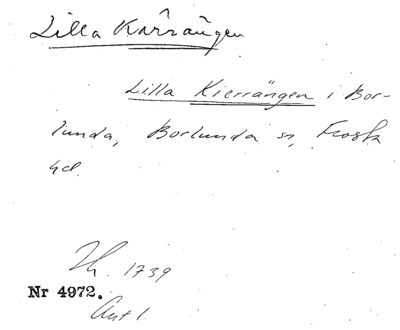 Lilla Kärrängen
Lilla Kierrängen i Bor-
lunda, Borlunda sn, Frosta
hd.
Th. 1739
Nr 4972.
Ant 1.